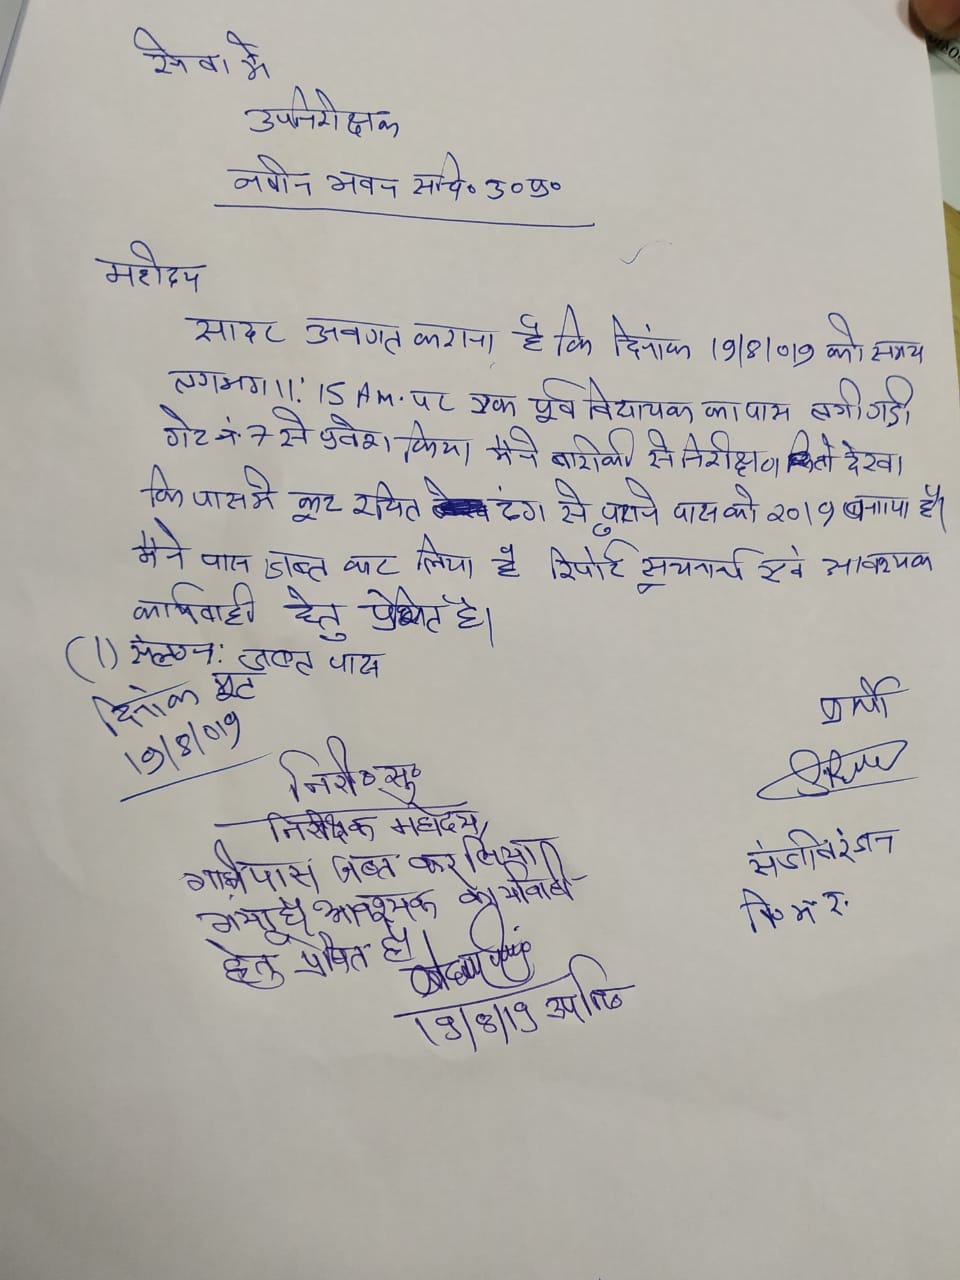 सेवा में
उपनिरीक्षक
नवीन भवन सचि० उ०प्र०
महोदय
सादर अवगत कराना है कि दिनांक 19/8/019 को समय
लगभग 11:15 AM. पर एक पूर्व विधायक का पास लगी गाड़ी
गेट नं. 7 से प्रवेश किया। मैंने बारीकी से निरीक्षण तो देखा
कि पास में कूट रचित ढंग से पुराने पास को 2019 बनाया है।
मैंने पास जब्त कर लिया है रिपोर्ट सूचनार्थ एवं आवश्यक
कार्यवाही हेतु प्रेषित है।
(1) संलग्न: जब्त पास
दिनांक
19/8/019
प्रार्थी
निरी० सु०
निरीक्षक महोदय,
पास जब्त कर लिया
गया है आवश्यक कार्यवाही
हेतु प्रेषित है।
संजीव रंजन
19/8/19 उ०नि०